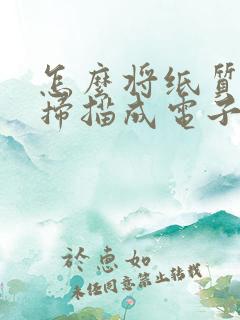 怎麽将纸質
掃描成電子
於惠如
未经同意禁止转载